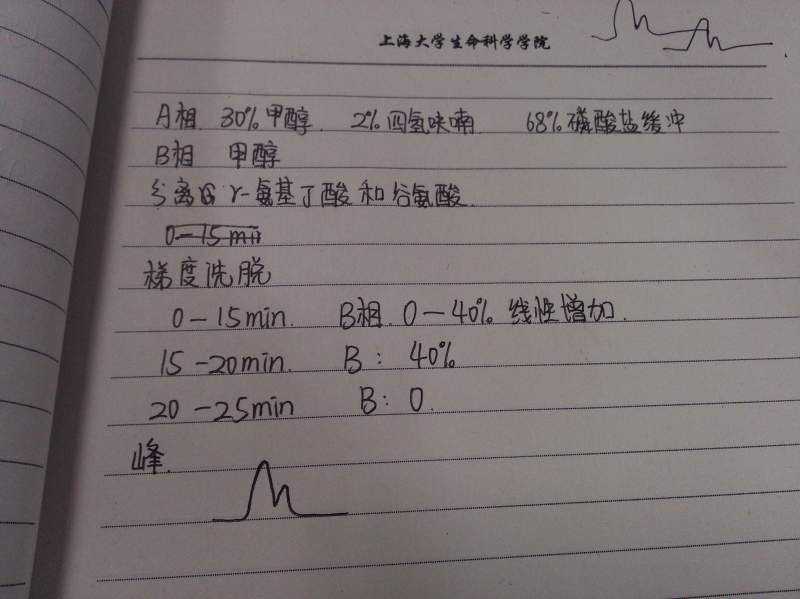 上海大学生命科学学院
A相 30%甲醇 2%四氢呋喃 68%磷酸盐缓冲
B相 甲醇
分离 γ-氨基丁酸和谷氨酸.
0-15min
梯度洗脱
0-15min. B相. 0-40% 线性增加.
15-20min. B: 40%
20-25min B: 0.
峰.